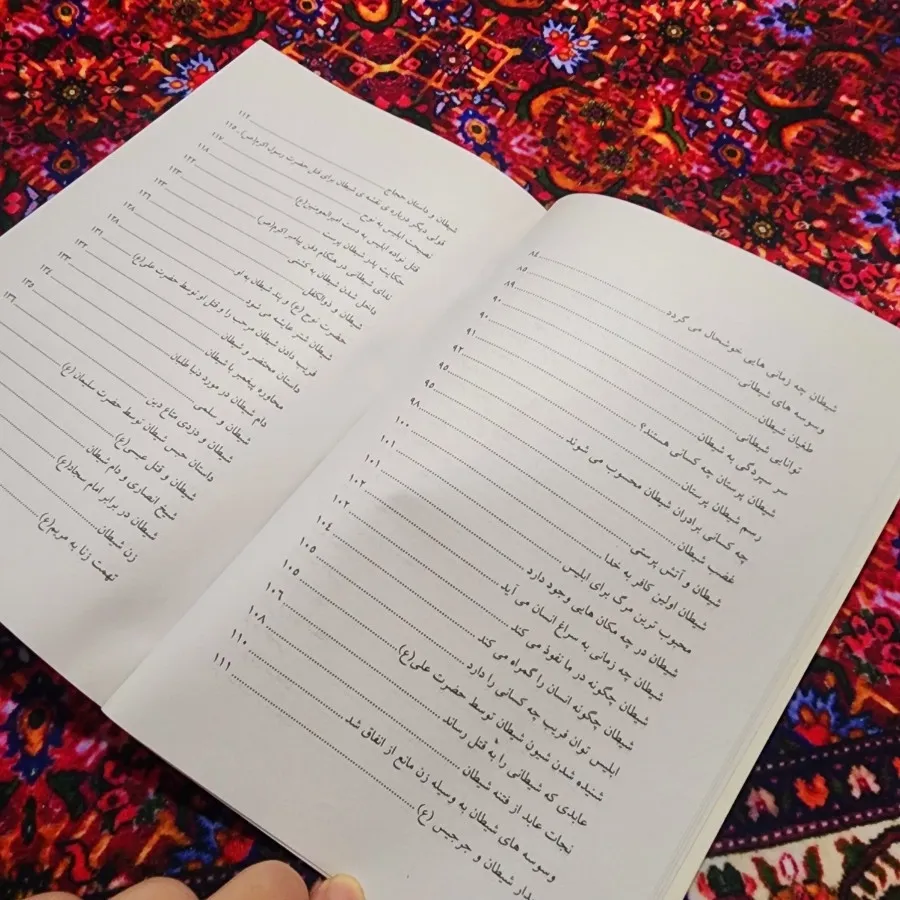 شیطان چه زمانی هایی خوشحال می گردد ۸۴
وسوسه های شیطانی ۸۵
طغیان شیطان ۸۹
توانایی شیطانی ۹۰
سر سپردگی به شیطان ۹۰
شیطان پرستان چه کسانی هستند؟ ۹۱
رسم شیطان پرستان ۹۲
چه کسانی برادران شیطان محسوب می شوند ۹۵
غضب شیطان ۹۵
شیطان و آتش پرستی ۹۸
شیطان اولین کافر به خدا ۱۰۰
محبوب ترین مرگ برای ابلیس ۱۰۱
شیطان در چه مکان هایی وجود دارد ۱۰۱
شیطان چه زمانی به سراغ انسان می آید ۱۰۲
شیطان چگونه در ما نفوذ می کند ۱۰۳
شیطان چگونه انسان را گمراه می کند ۱۰۴
ابلیس توان فریب چه کسانی را دارد ۱۰۵
شنیده شدن شیون شیطان توسط حضرت علی(ع) ۱۰۵
عابدی که شیطانی را به قتل رساند ۱۰۶
نجات عابد از فتنه شیطان ۱۰۸
وسوسه های شیطان به وسیله زن مانع از انفاق شد ۱۱۰
شیطان و جرجیس (ع) ۱۱۱
شیطان و داستان حجاج ۱۱۲
قولی دیگر درباره ی نقشه ی شیطان برای قتل حضرت رسول اکرم(ص) ۱۱۵
نصیحت ابلیس به نوح ۱۱۷
قتل نواده ابلیس به دست امیرالمومنین(ع) ۱۱۸
حکایت پدر شیطان پرست ۱۲۲
ندای شیطانی در هنگام دفن پیامبر اکرم(ص) ۱۲۳
داخل شدن شیطان به کشتی ۱۲۳
شیطان و ذوالکفل ۱۲۶
حضرت نوح (ع) و پند شیطان به او ۱۲۸
شیطان شتر عایشه می شود ۱۲۸
فریب دادن شیطان مرحب را و قتل او توسط حضرت علی(ع) ۱۳۱
داستان محتضر و شیطان ۱۳۲
محاوره پیغمبر با شیطان ۱۳۳
دام شیطان در مورد دنیا طلبان ۱۳۴
شیطان و سلمی ۱۳۵
شیطان و دزدی متاع دین ۱۳۶
داستان حبس شیطان توسط حضرت سلیمان (ع)
شیطان و قتل عیسی(ع)
شیخ انصاری و دام شیطان
شیطان در برابر امام سجاد(ع)
زن شیطان
تهمت زنا به مریم(ع)